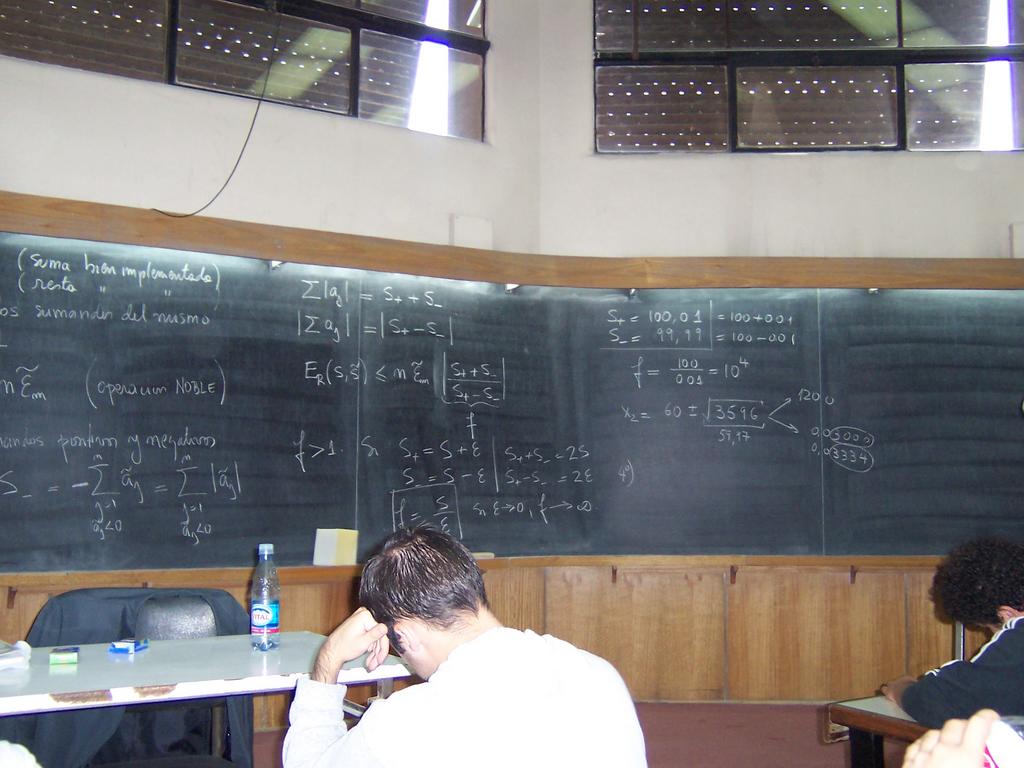 (suma bien implementada)
(resta " " )
os sumandos del mismo
n ε̃m (operación NOBLE)
mandos positivos y negativos
S_ = - Σ ãj = Σ |ãj|
n n
j=1 j=1
aj<0 aj<0
Σ|aj| = S+ + S_
|Σ aj| = |S+ - S_|
ER(S,s̃) ≤ n ε̃m |S+ + S_ / S+ - S_|
f
f>1. Si S+ = S + ε | S+ + S_ = 2S
S_ = S - ε | S+ - S_ = 2ε
f = S/ε si ε→0, f→∞
S+ = 100,01 = 100+0.01
S_ = 99,99 = 100-0.01
f = 100/0.01 = 10⁴
x₂ = 60 ± √3596
59,97
120
0,03000
0,03334
4º)
VITAL